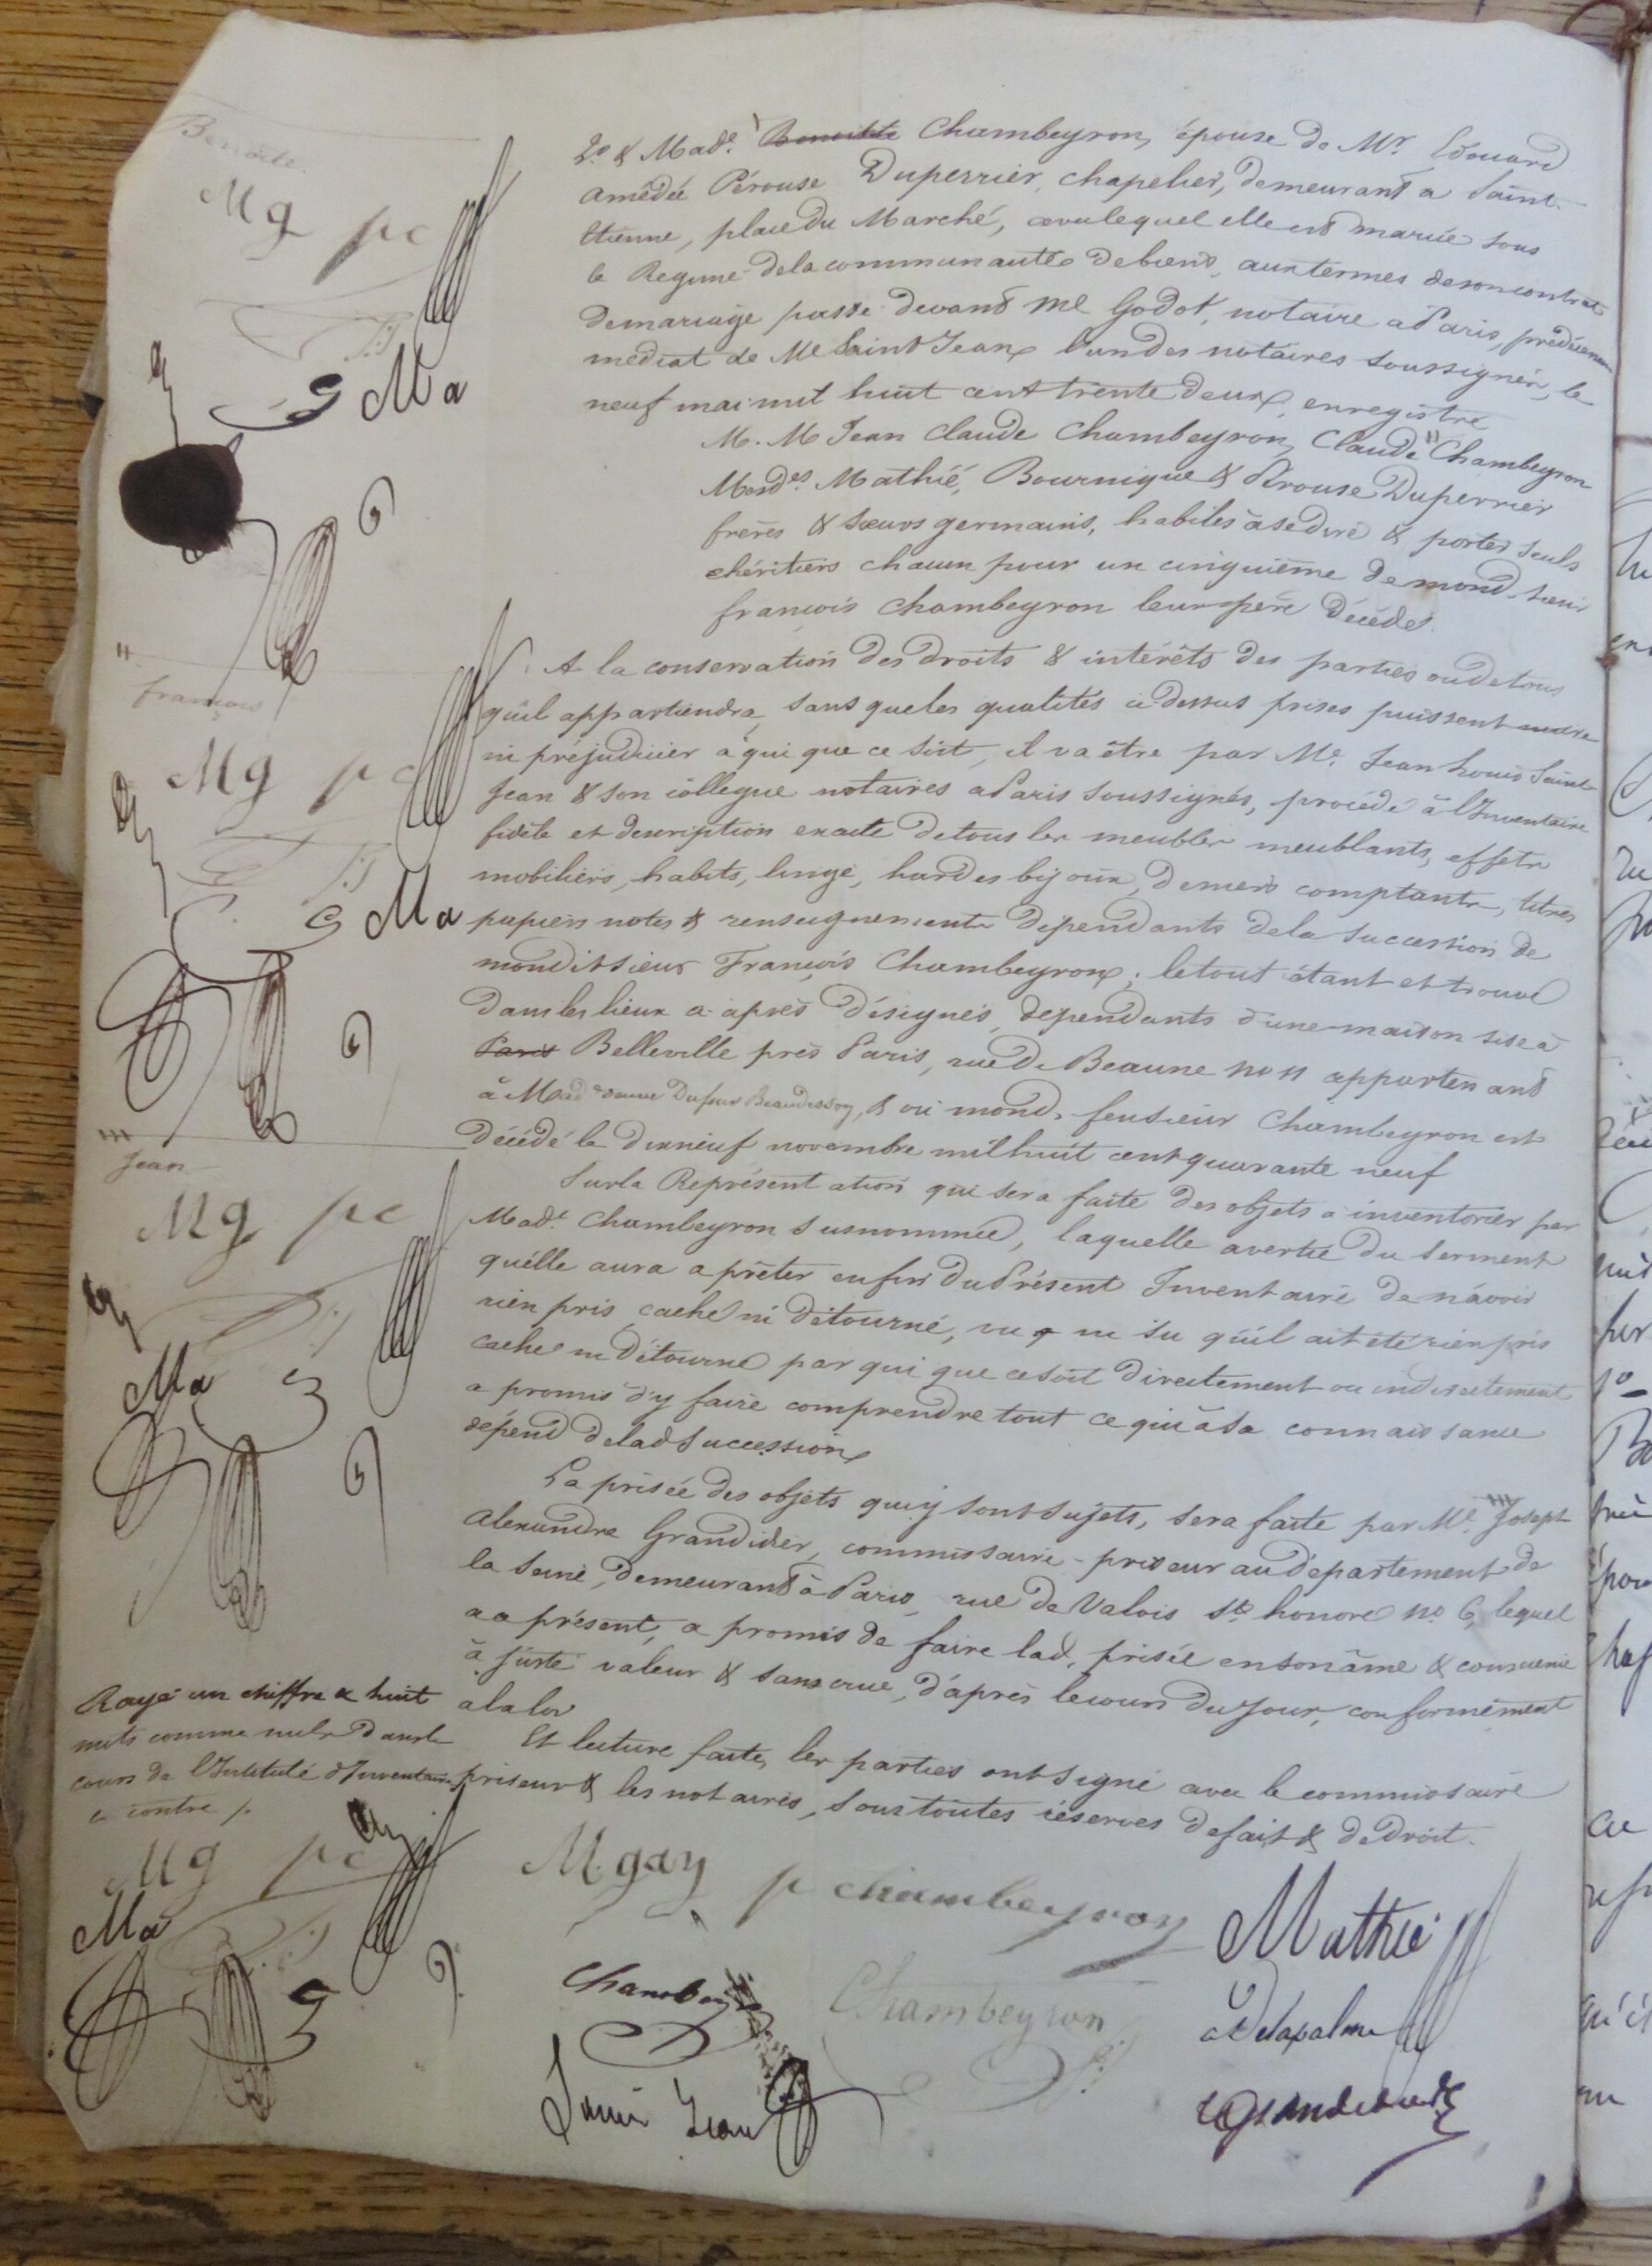 Benoite
2º & Made. Benoitte Chambeyron, épouse de Mr Edouard
amédée Pérouse Duperrier, chapelier, demeurant a Saint-
Etienne, place du Marché, avec lequel elle est mariée sous
le Regime de la communauté de biens, aux termes de son contrat
de mariage passé devant Me Godot, notaire a Paris,
médiat de Me Saint Jean l'un des notaires soussignés, le
neuf mai mil huit cent trente deux, enregistré
M. M Jean Claude Chambeyron, Claude " Chambeyron
Mesdes Mathié, Bournique & Pérouse Duperrier
frères & sœurs germains, habiles à se dire & porter seuls
héritiers chacun pour un cinquième de mond. sieur
françois Chambeyron leur père décédé.
" françois
A la conservation des droits & intérêts des parties ou de tous
qu'il appartiendra, sans que les qualités ci dessus prises puissent nuire
ni préjudicier à qui que ce soit, il va être par Me Jean Louis Saint
Jean & son collegue notaires a Paris soussignés, procédé à l'Inventaire
fidèle et description exacte de tous les meubles meublants, effets
mobiliers, habits, linge, hardes bijoux, deniers comptants, titres
papiers notes & renseignements dépendants de la succession de
mondit sieur François Chambeyron; le tout étant et trouvé
dans les lieux ci-après désignés, dépendants d'une maison sise à
Paris Belleville près Paris, rue de Beaune no 11 appartenant
à Made veuve Dufour, & où mond. feu sieur Chambeyron est
décédé le dix neuf novembre mil huit cent quarante neuf
''' Jean
Sur la Représentation qui sera faite des objets à inventorier par
Made Chambeyron susnommée, laquelle avertie du serment
qu'elle aura a prêter en fin du Présent Inventaire de n'avoir
rien pris caché ni détourné, vu ni su qu'il ait été rien pris
caché ni détourné par qui que ce soit directement ou indirectement
a promis d'y faire comprendre tout ce qui à sa connaissance
dépend de lad succession
La prisée des objets qui y sont sujets, sera faite par Me ''' Joseph
Alexandre Grandidier, commissaire-priseur au département de
la Seine, demeurant à Paris, rue de Valois St honoré No 6, lequel
a ce présent, a promis de faire lad. prisée en son âme & conscience
à juste valeur & sans crue, d'après le cours du jour, conformément
a la loi
Et lecture faite, les parties ont signé avec le commissaire
priseur & les notaires, sous toutes réserves de fait & de droit.
Rayé un chiffre & huit
mots comme nuls dans le
cours de l'Intitulé d'Inventaire
ci contre /.
Mg pc
Ma
Mg pc
Ma
Mg pc
Ma
Mg pc
Ma
M. gay
p chambeyron
Mathié
Chambeyron
Chambeyron
aDelapalme
Saint Jean
Grandidier